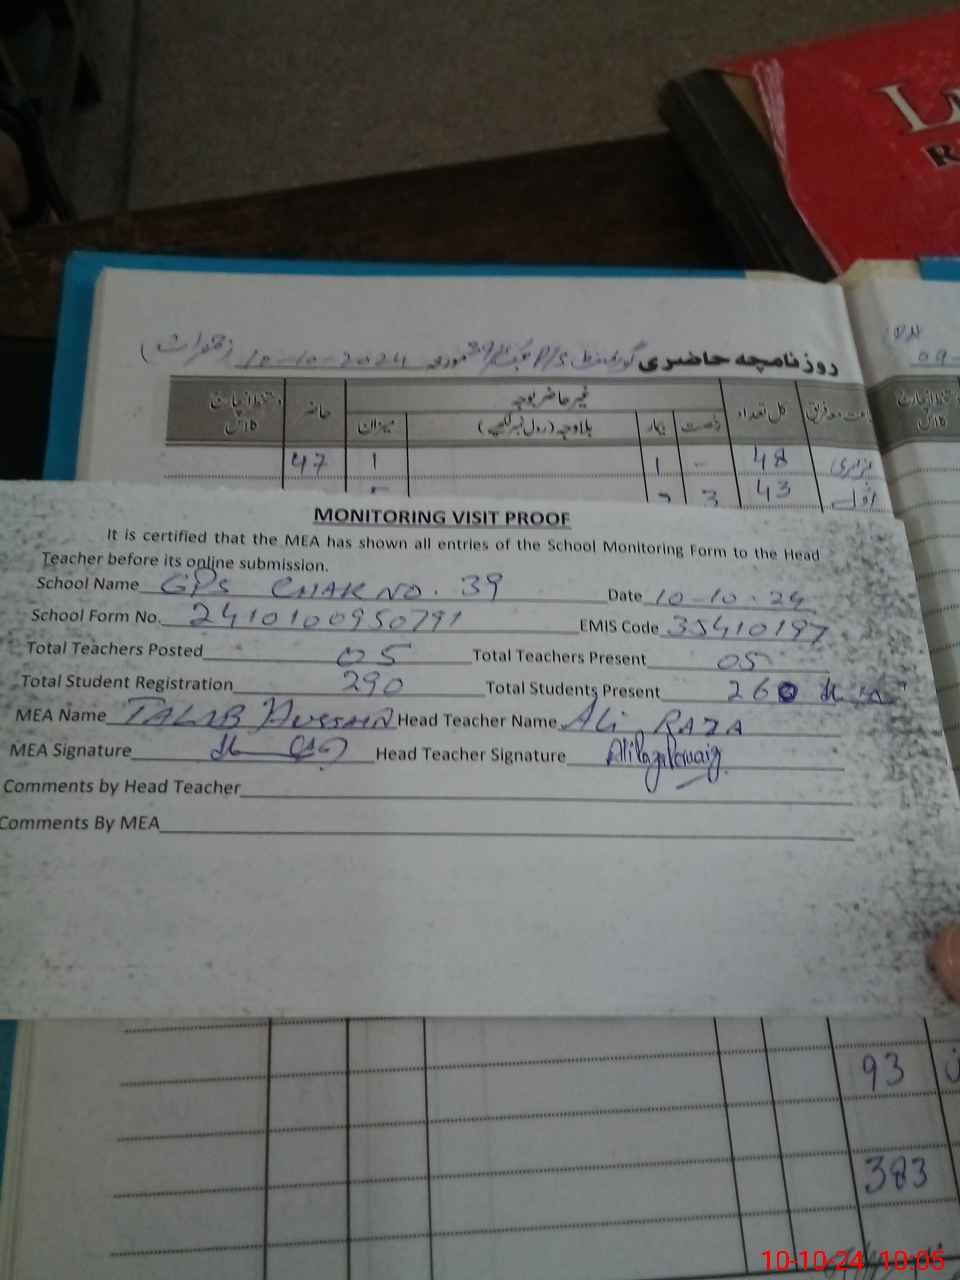 L
R
روزنامچہ حاضری گورنمنٹ P/S چک 39 مورخہ 10-10-2024 (جمعرات)
09-
کل تعداد غیر حاضر بوجہ حاضر
رخصت بیمار بلاوجہ (رول نمبر لکھیے) میزان
نرسری 48 - 1 1 47
اوّل 43 3
MONITORING VISIT PROOF
It is certified that the MEA has shown all entries of the School Monitoring Form to the Head
Teacher before its online submission.
School Name GPS CHAK NO. 39 Date 10-10-24
School Form No. 2410100950791 EMIS Code 35410197
Total Teachers Posted 05 Total Teachers Present 05
Total Student Registration 290 Total Students Present 260
MEA Name TALIB HUSSAIN Head Teacher Name ALI RAZA
MEA Signature Head Teacher Signature
Comments by Head Teacher
Comments By MEA
93
383
10-10-24 10:05